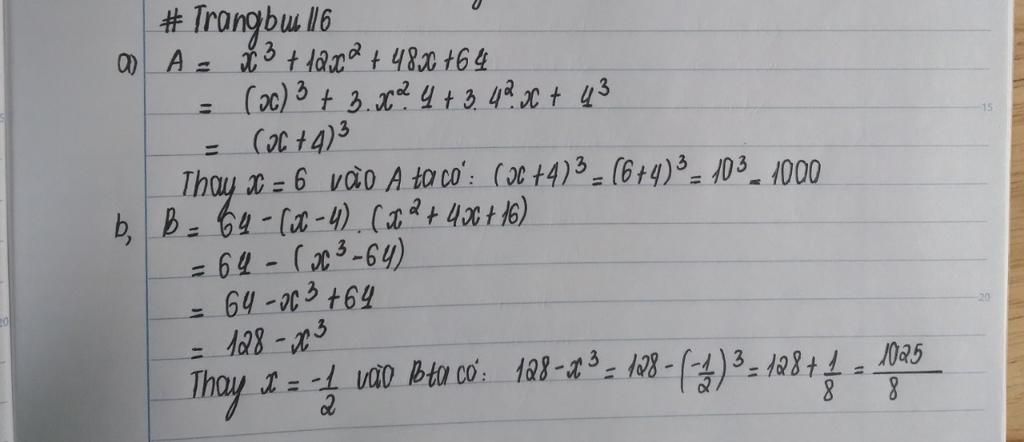 # Trangbui116
a) A = x³ + 12x² + 48x + 64
= (x)³ + 3.x².4 + 3.4².x + 4³
= (x+4)³
Thay x = 6 vào A ta có: (x+4)³ = (6+4)³ = 10³ = 1000
b, B = 64 - (x-4).(x² + 4x + 16)
= 64 - (x³ - 64)
= 64 - x³ + 64
= 128 - x³
Thay x = -1/2 vào B ta có: 128 - x³ = 128 - (-1/2)³ = 128 + 1/8 = 1025/8
15
20